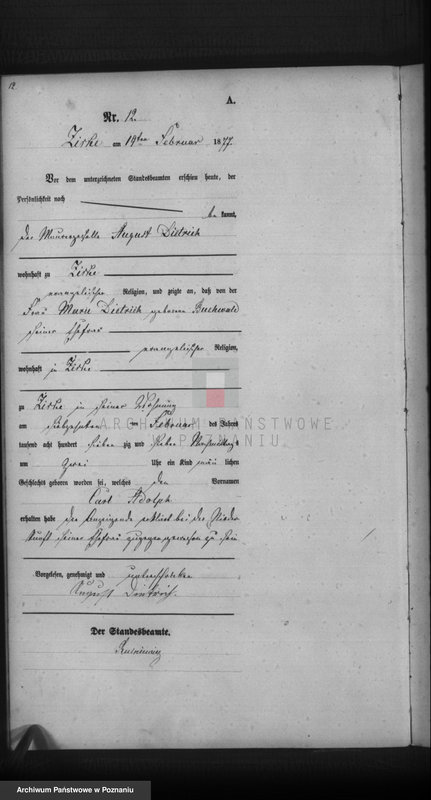 12
A.
Nr. 12
Zirke am 19ten Februar 1877.
Vor dem unterzeichneten Standesbeamten erschien heute, der
Persönlichkeit nach
be kannt,
der Maurergeselle August Dietrich
wohnhaft zu Zirke
evangelischer Religion, und zeigte an, daß von der
Frau Marie Dietrich geborene Buchwald
seiner Ehefrau
evangelischer Religion,
wohnhaft in Zirke
zu Zirke in seiner Wohnung
am siebzehnten ten Februar des Jahres
tausend acht hundert sieben zig und sieben Nachmittags
um zwei Uhr ein Kind männ lichen
Geschlechts geboren worden sei, welches den Vornamen
Carl Adolph
erhalten habe der Anzeigende erklärt bei der Nieder
kunft seiner Ehefrau zugegen gewesen zu sein
Vorgelesen, genehmigt und unterschrieben
August Dietrich.
Der Standesbeamte.
ARCHIWUM PAŃSTWOWE
W POZNANIU
Archiwum Państwowe w Poznaniu